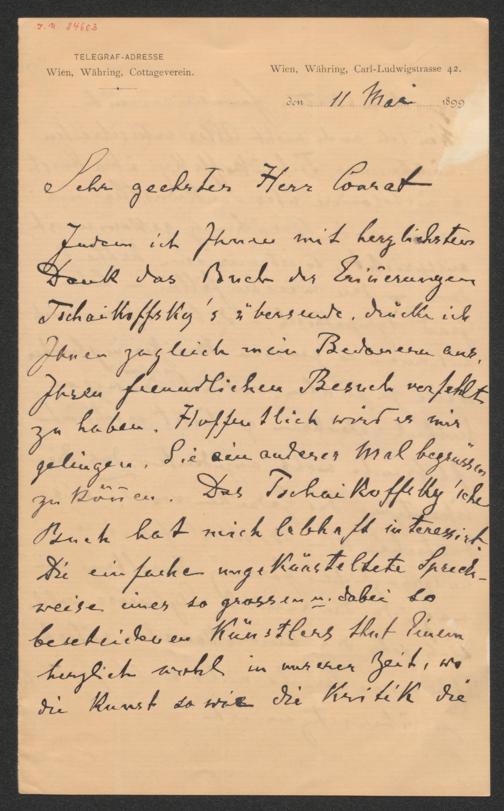 J. N. 84603
TELEGRAF-ADRESSE
Wien, Währing, Cottageverein.
Wien, Währing, Carl-Ludwigstrasse 42.
den 11 Mai 1899
Sehr geehrter Herr Conrat
Indem ich Ihnen mit herzlichstem
Dank das Buch der Erinnerungen
Tschaikoffsky's übersende, drücke ich
Ihnen zugleich mein Bedauern aus,
Ihren freundlichen Besuch verfehlt
zu haben. Hoffentlich wird es mir
gelingen, Sie ein anderes Mal begrüssen
zu können. Das Tschaikoffsky'sche
Buch hat mich lebhaft interessirt
Die einfache ungekünsteltete Sprech-
weise eines so grossen u. dabei so
bescheidenen Künstlers thut Einem
herzlich wohl in unserer Zeit, wo
die Kunst so wie die Kritik die